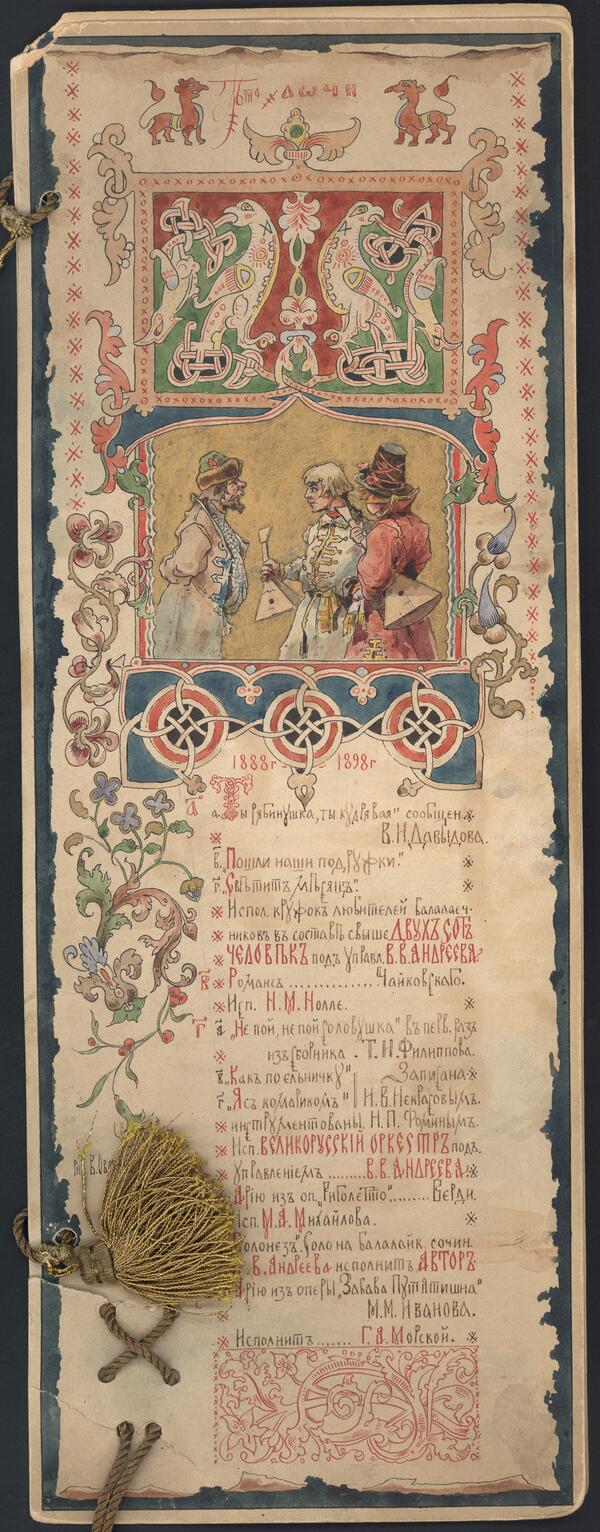 1888г 1898г
а. „Ты рябинушка, ты кудрявая" сообщен.
В. И. Давыдова.
в. „Пошли наши подружки."
г. „Свѣтитъ мѣсяцъ".
Испол. кружокъ любителей балалаеч-
никовъ въ составѣ свыше ДВУХЪ СОТЪ
ЧЕЛОВѢКЪ подъ управл. В. В. АНДРЕЕВА
В Романсъ ............... Чайковскаго.
Исп. Н. М. Нолле.
Г а. „Не пой, не пой соловушка" въ перв. разъ
изъ сборника . Т. И. Филиппова.
в. „Какъ по ельничку" Записана
г. „Ясъ комарикомъ" Н. В. Некрасовымъ.
инструментованы Н. П. Фоминымъ.
Исп. ВЕЛИКОРУССКІЙ ОРКЕСТРЪ подъ.
управленіемъ ......... В. В. АНДРЕЕВА.
Арію изъ оп. „Риголетто" ........ Верди.
Исп. М. А. Михайлова.
Полонезъ". Соло на балалайк. сочин.
В. Андреева исполнитъ АВТОРЪ
Арію изъ оперы „Забава Путятишна"
М. М. Иванова.
Исполнитъ ....... Г. А. Морской.